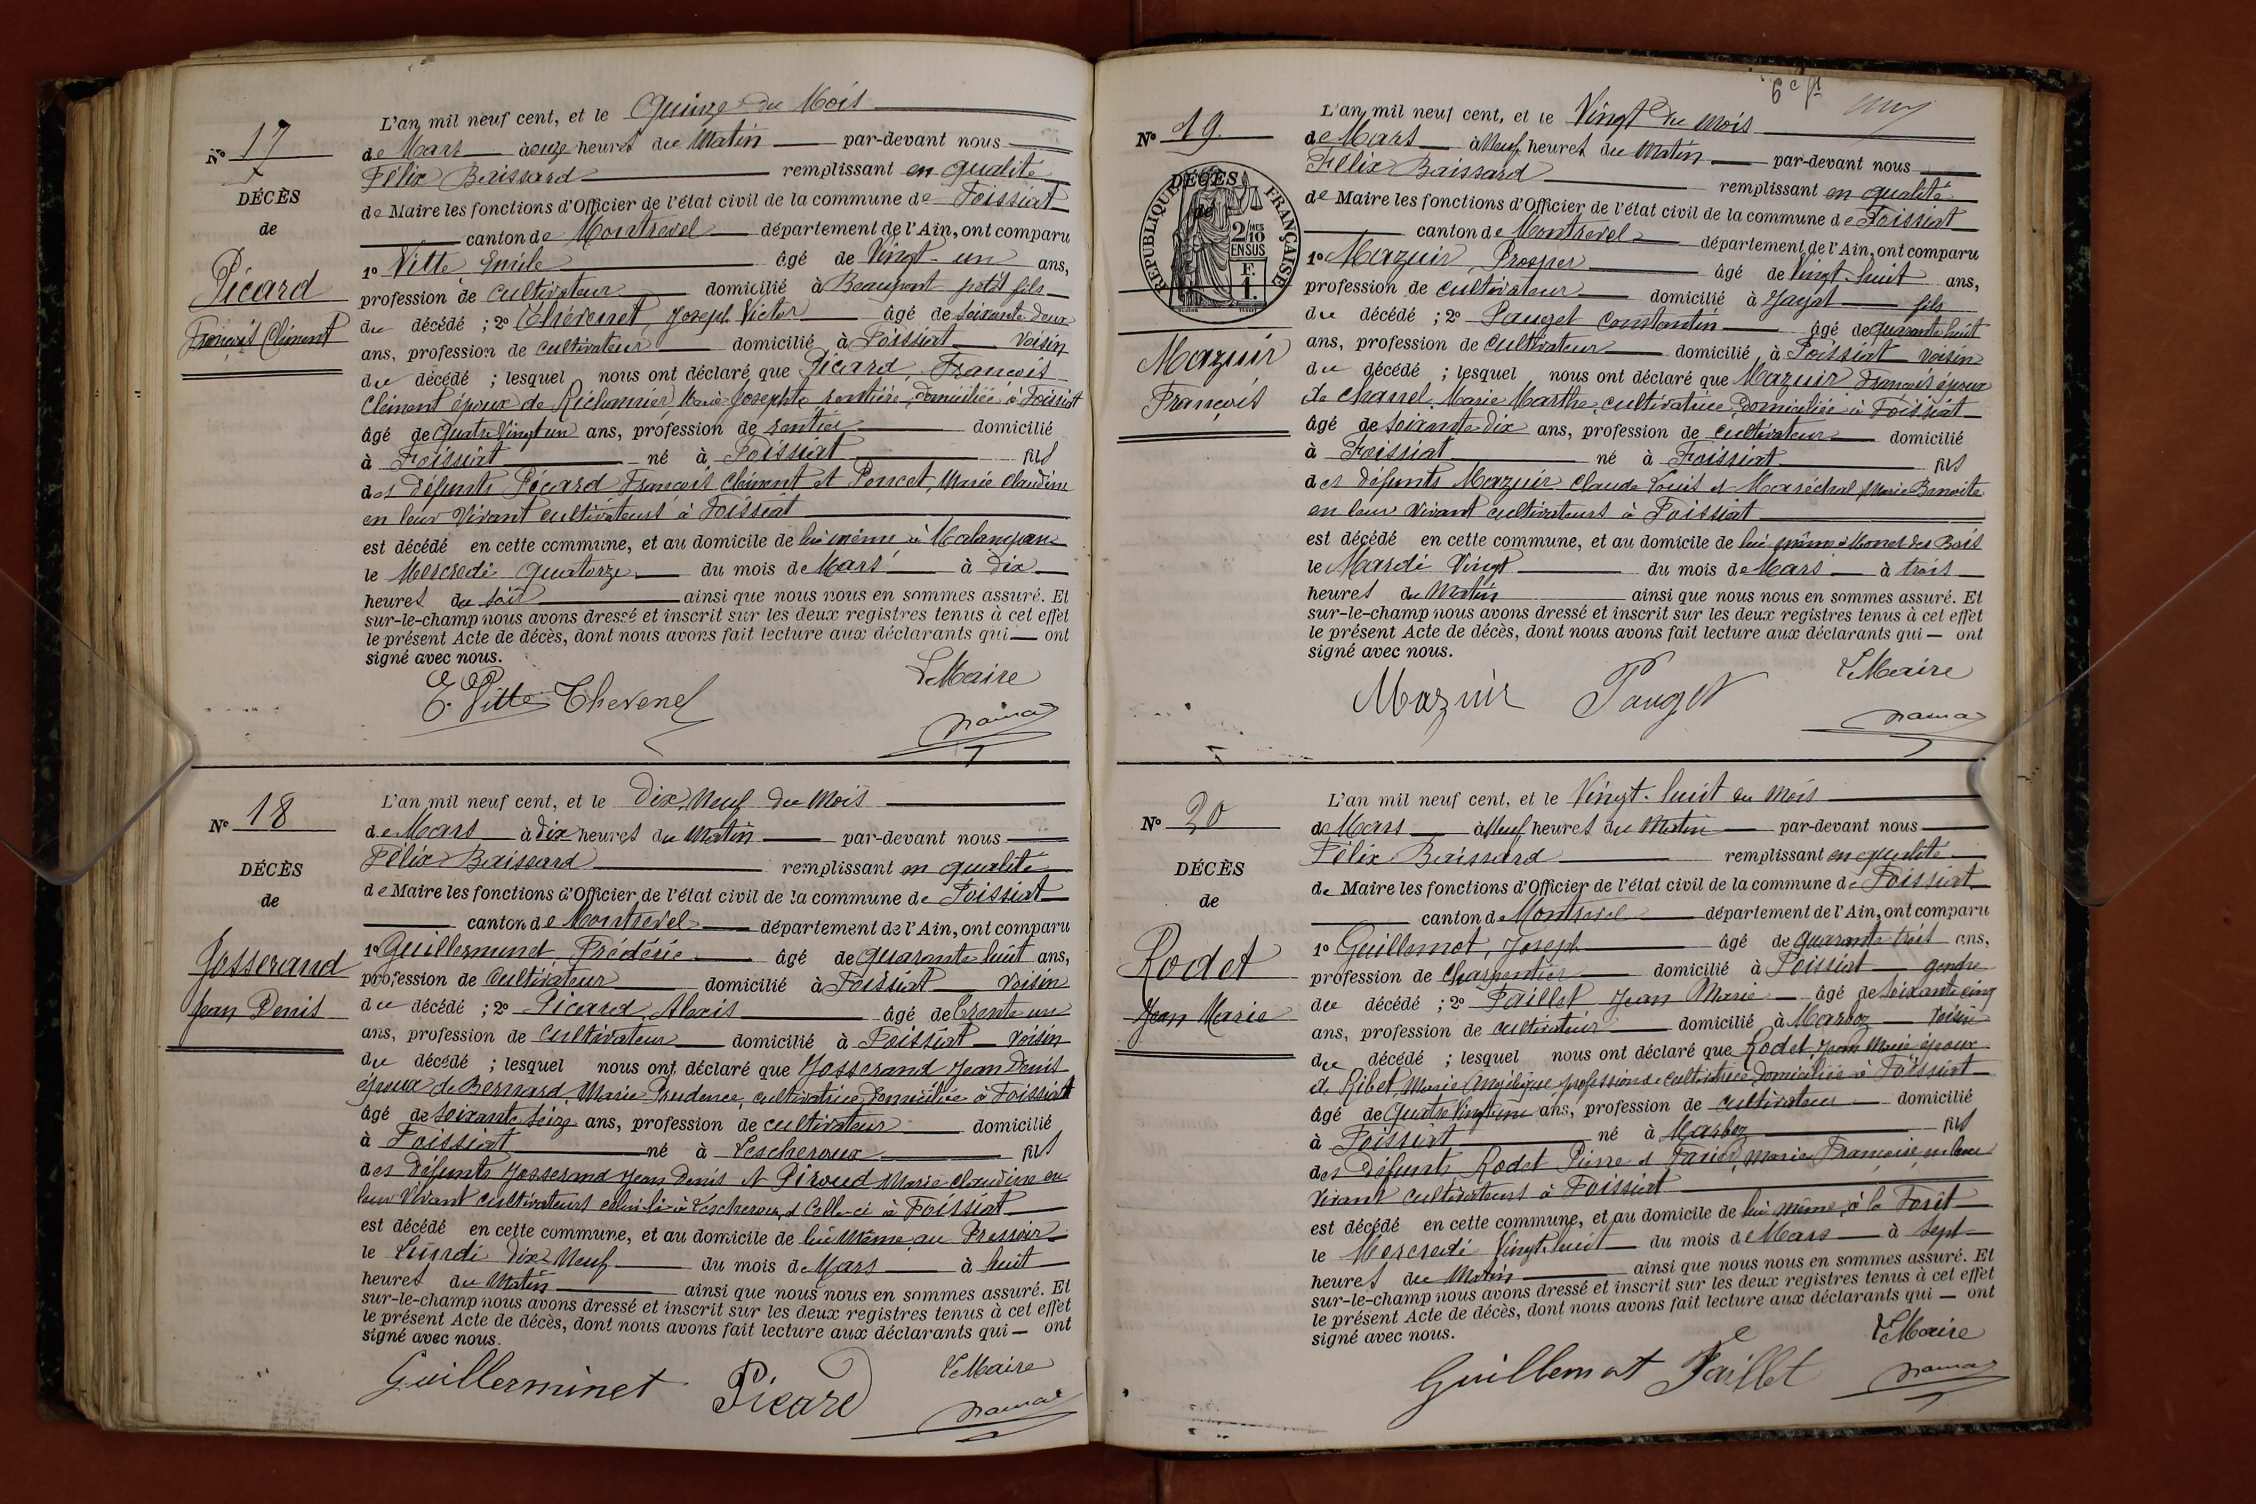 N° 17
DÉCÈS
de
Picard
François Clément
L'an mil neuf cent, et le Quinze du Mois
de Mars à onze heures du Matin par-devant nous
Félix Baissard remplissant en qualité
de Maire les fonctions d'Officier de l'état civil de la commune de Foissiat
canton de Montrevel département de l'Ain, ont comparu
1° Vitte Emile âgé de Vingt-un ans,
profession de cultivateur domicilié à Beaupont petit fils
du décédé ; 2° Thévenet, Joseph Victor âgé de soixante deux
ans, profession de cultivateur domicilié à Foissiat voisin
du décédé ; lesquel nous ont déclaré que Picard, François
Clément époux de Marie Josephte rentière, domiciliée à Foissiat
âgé de quatre vingt un ans, profession de rentier domicilié
à Foissiat né à Foissiat fils
des défunts Picard François Clément et Poncet, Marie Claudine
en leur Vivant cultivateurs à Foissiat
est décédé en cette commune, et au domicile de lui même à
le Mercredi quatorze du mois de Mars à dix
heures du soir ainsi que nous nous en sommes assuré. Et
sur-le-champ nous avons dressé et inscrit sur les deux registres tenus à cet effet
le présent Acte de décès, dont nous avons fait lecture aux déclarants qui ont
signé avec nous.
Le Maire
E. Vitte Thevenet
N° 18
DÉCÈS
de
Josserand
Jean Denis
L'an mil neuf cent, et le Dix Neuf du Mois
de Mars à dix heures du Matin par-devant nous
Félix Baissard remplissant en qualité
de Maire les fonctions d'Officier de l'état civil de la commune de Foissiat
canton de Montrevel département de l'Ain, ont comparu
1° Guillerminet, Frédéric âgé de quarante huit ans,
profession de cultivateur domicilié à Foissiat voisin
du décédé ; 2° Picard, Alexis âgé de trente un
ans, profession de cultivateur domicilié à Foissiat voisin
du décédé ; lesquel nous ont déclaré que Josserand Jean Denis
époux de Bernard, Marie Prudence, cultivatrice domiciliée à Foissiat
âgé de soixante seize ans, profession de cultivateur domicilié
à Foissiat né à Lescheroux fils
des défunts Josserand Jean Denis et Piroud Marie Claudine en
leur Vivant cultivateurs celui-là à Lescheroux et Celle-ci à Foissiat
est décédé en cette commune, et au domicile de lui même au Pressoir
le Lundi dix Neuf du mois de Mars à huit
heures du Matin ainsi que nous nous en sommes assuré. Et
sur-le-champ nous avons dressé et inscrit sur les deux registres tenus à cet effet
le présent Acte de décès, dont nous avons fait lecture aux déclarants qui ont
signé avec nous.
Le Maire
Guillerminet Picard
N° 19
DÉCÈS
de
RÉPUBLIQUE FRANÇAISE
2/10 MES
EN SUS
F.
1.
Mazuir
François
L'an mil neuf cent, et le Vingt du mois
de Mars à Neuf heures du Matin par-devant nous
Félix Baissard remplissant en qualité
de Maire les fonctions d'Officier de l'état civil de la commune de Foissiat
canton de Montrevel département de l'Ain, ont comparu
1° Mazuir, Prosper âgé de Vingt huit ans,
profession de cultivateur domicilié à Jayat fils
du décédé ; 2° Pauget Constantin âgé de quarante huit
ans, profession de cultivateur domicilié à Foissiat voisin
du décédé ; lesquel nous ont déclaré que Mazuir François époux
de Charrel, Marie Marthe, cultivatrice, domiciliée à Foissiat
âgé de soixante dix ans, profession de cultivateur domicilié
à Foissiat né à Foissiat fils
des défunts Mazuir Claude Louis et Maréchal Marie Benoite
en leur vivant cultivateurs à Foissiat
est décédé en cette commune, et au domicile de lui même à des Bois
le Mardi Vingt du mois de Mars à trois
heures du Matin ainsi que nous nous en sommes assuré. Et
sur-le-champ nous avons dressé et inscrit sur les deux registres tenus à cet effet
le présent Acte de décès, dont nous avons fait lecture aux déclarants qui ont
signé avec nous.
Le Maire
Mazuir Pauget
N° 20
DÉCÈS
de
Rodet
Jean Marie
L'an mil neuf cent, et le Vingt-huit du mois
de Mars à Neuf heures du Matin par-devant nous
Félix Baissard remplissant en qualité
de Maire les fonctions d'Officier de l'état civil de la commune de Foissiat
canton de Montrevel département de l'Ain, ont comparu
1° Guillemot, Joseph âgé de quarante trois ans,
profession de charpentier domicilié à Foissiat gendre
du décédé ; 2° Paillet Jean Marie âgé de soixante cinq
ans, profession de cultivateur domicilié à Marboz voisin
du décédé ; lesquel nous ont déclaré que Rodet, Jean Marie époux
de Ribet, Marie Angélique profession de cultivatrice domiciliée à Foissiat
âgé de quatre vingt ans, profession de cultivateur domicilié
à Foissiat né à Marboz fils
des défunts Rodet Pierre et Marie Françoise en leur
vivant cultivateurs à Foissiat
est décédé en cette commune, et au domicile de lui même, à la Forêt
le Mercredi Vingt huit du mois de Mars à sept
heures du Matin ainsi que nous nous en sommes assuré. Et
sur-le-champ nous avons dressé et inscrit sur les deux registres tenus à cet effet
le présent Acte de décès, dont nous avons fait lecture aux déclarants qui ont
signé avec nous.
Le Maire
Guillemot Paillet